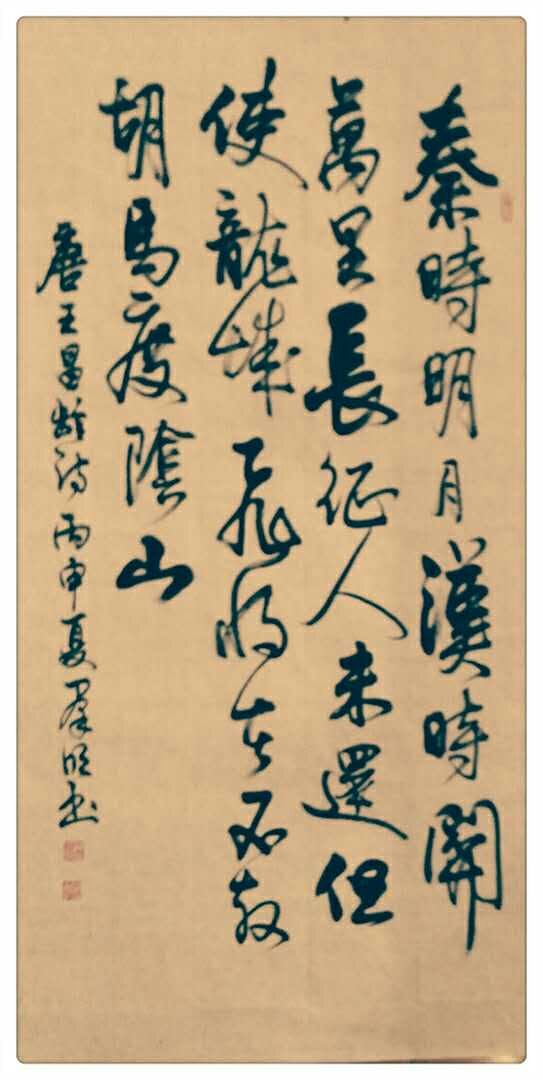 秦時明月漢時關
萬里長征人未還但
使龍城飛將在不教
胡馬度陰山
唐王昌齡詩丙申夏羣明書